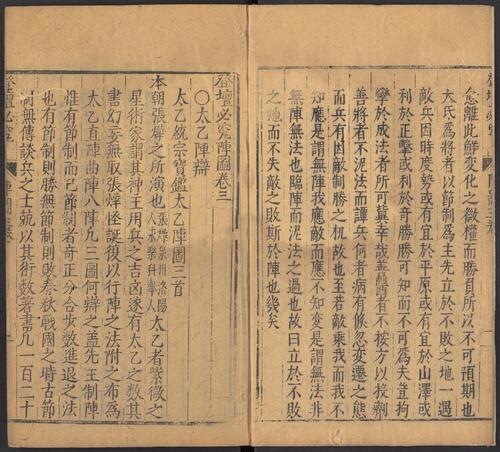 怠離此鮮變化之微權而勝負所以不可預期也
大氐爲將者以節制爲主先立於不敗之地一遇
敵兵因時度勢或有宜於平原或有宜於山澤或
利於正擊或利於奇勝勝可知而不可爲夫豈拘
攣於成法者所可冀幸哉善醫者不按方以投劑
善將者不泥法而譚兵何者病有倐忽變遷之態
而兵有因敵制勝之机故也至若敵乘我而我不
知應是謂無陣我應敵而應不知變是謂無法非
無陣無法也臨陣而泥法之過也故曰立於不敗
之地而不失敵之敗斯於陣也幾矣
登壇必究陣圖卷三
〇太乙陣辯
太乙統宗寶鑑太乙陣圖三首
本朝張燁之所演也
太乙者紫微之
星術家謂其神王用兵之吉凶遂有太乙之數其
書幻妄無取張燁怪誕復以行陣之法附之布爲
太乙直陣曲陣八陣凡三圖何辯之蓋先王制陣
惟有節制而已節制者奇正分合步數進退之法
也有節制則勝無節制則敗春秋戰國之時古節
制無傳談兵之士競以其術數著書凡一百二十
登壇必究
陣圖三卷